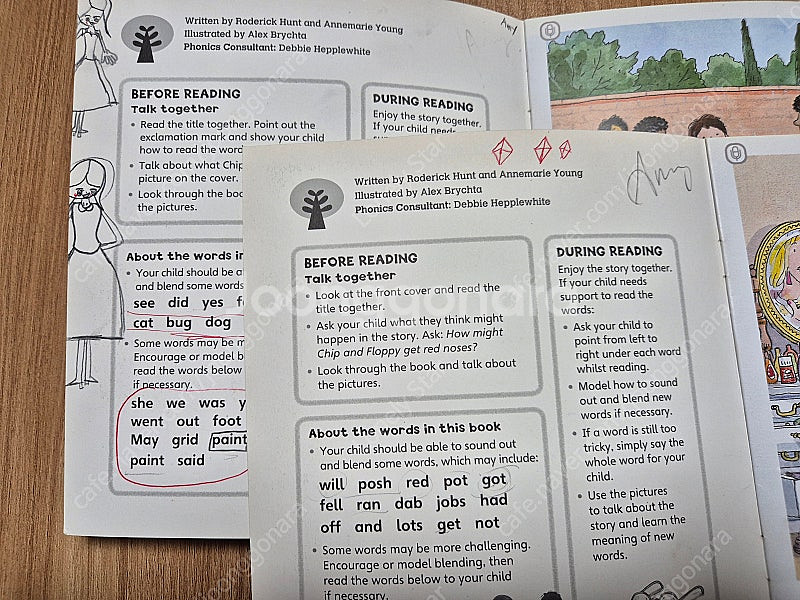 Written by Roderick Hunt and Annemarie Young
Illustrated by Alex Brychta
Phonics Consultant: Debbie Hepplewhite
Amy
BEFORE READING
Talk together
• Read the title together. Point out the
exclamation mark and show your child
how to read the
• Talk about what Chip
picture on the cover.
• Look through the
the pictures.
DURING READING
Enjoy the story together.
If your child needs
About the words in
• Your child should be
and blend some words
see did yes
cat bug dog
• Some words may be
Encourage or model
read the words below
if necessary.
she we was
went out foot
May grid paint
paint said
Written by Roderick Hunt and Annemarie Young
Illustrated by Alex Brychta
Phonics Consultant: Debbie Hepplewhite
Amy
BEFORE READING
Talk together
• Look at the front cover and read the
title together.
• Ask your child what they think might
happen in the story. Ask: How might
Chip and Floppy get red noses?
• Look through the book and talk about
the pictures.
About the words in this book
• Your child should be able to sound out
and blend some words, which may include:
will posh red pot got
fell ran dab jobs had
off and lots get not
• Some words may be more challenging.
Encourage or model blending, then
read the words below to your child
if necessary.
DURING READING
Enjoy the story together.
If your child needs
support to read the
words:
• Ask your child to
point from left to
right under each word
whilst reading.
• Model how to sound
out and blend new
words if necessary.
• If a word is still too
tricky, simply say the
whole word for your
child.
• Use the pictures
to talk about the
story and learn the
meaning of new
words.